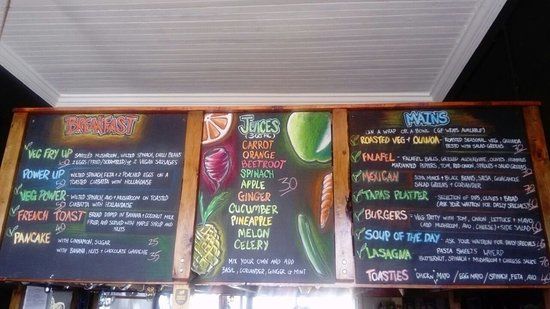 BREAKFAST
VEG FRY UP GRILLED MUSHROOM, WILTED SPINACH, CHILLI BEANS
2 EGGS (FRIED/SCRAMBLED) + 2 VEGAN SAUSAGES
POWER UP WILTED SPINACH + 2 POACHED EGGS ON A
TOASTED CIABATTA WITH HOLLANDAISE
VEG POWER WILTED SPINACH, AVO + MUSHROOM ON TOASTED
CIABATTA WITH HOLLANDAISE
FRENCH TOAST BREAD DIPPED IN BANANA + COCONUT MILK
FRIED AND SERVED WITH MAPLE SYRUP AND
NUTS
PANCAKE WITH CINNAMON, SUGAR 25
WITH BANANA, NUTS + CHOCOLATE GANACHE 35
JUICES
CARROT
ORANGE
BEETROOT
SPINACH
APPLE 30
GINGER
CUCUMBER
PINEAPPLE
MELON
CELERY
MIX YOUR OWN AND ADD
BASIL, CORIANDER, GINGER & MINT
MAINS
(IN A WRAP OR A BOWL (GF WRAPS AVAILABLE))
ROASTED VEG + QUINOA - ROASTED SEASONAL VEG, QUINOA
PESTO WITH SALAD GREENS
FALAFEL - FALAFEL BALLS, GRILLED AUBERGINE, OLIVES, HUMMUS
MARINATED PEPPERS, ONION + SALAD GREENS
MEXICAN - SOYA MINCE + BLACK BEANS, SALSA, GUACAMOLE
SALAD GREENS + CORIANDER
TAPAS PLATTER - SELECTION OF DIPS, OLIVES + BREAD
(ASK YOUR WAITRON FOR DAILY SPECIALS)
BURGERS - VEG PATTY WITH TOM, ONION, LETTUCE + MAYO
(ADD MUSHROOM, AVO, CHEESE) + SIDE SALAD
SOUP OF THE DAY ASK YOUR WAITRON FOR DAILY SPECIALS
LASAGNA PASTA SHEETS LAYERED
BUTTERNUT, SPINACH + MUSHROOM + CHEESE SAUCE
TOASTIES CHICKEN MAYO / EGG MAYO / SPINACH, FETA, AVO